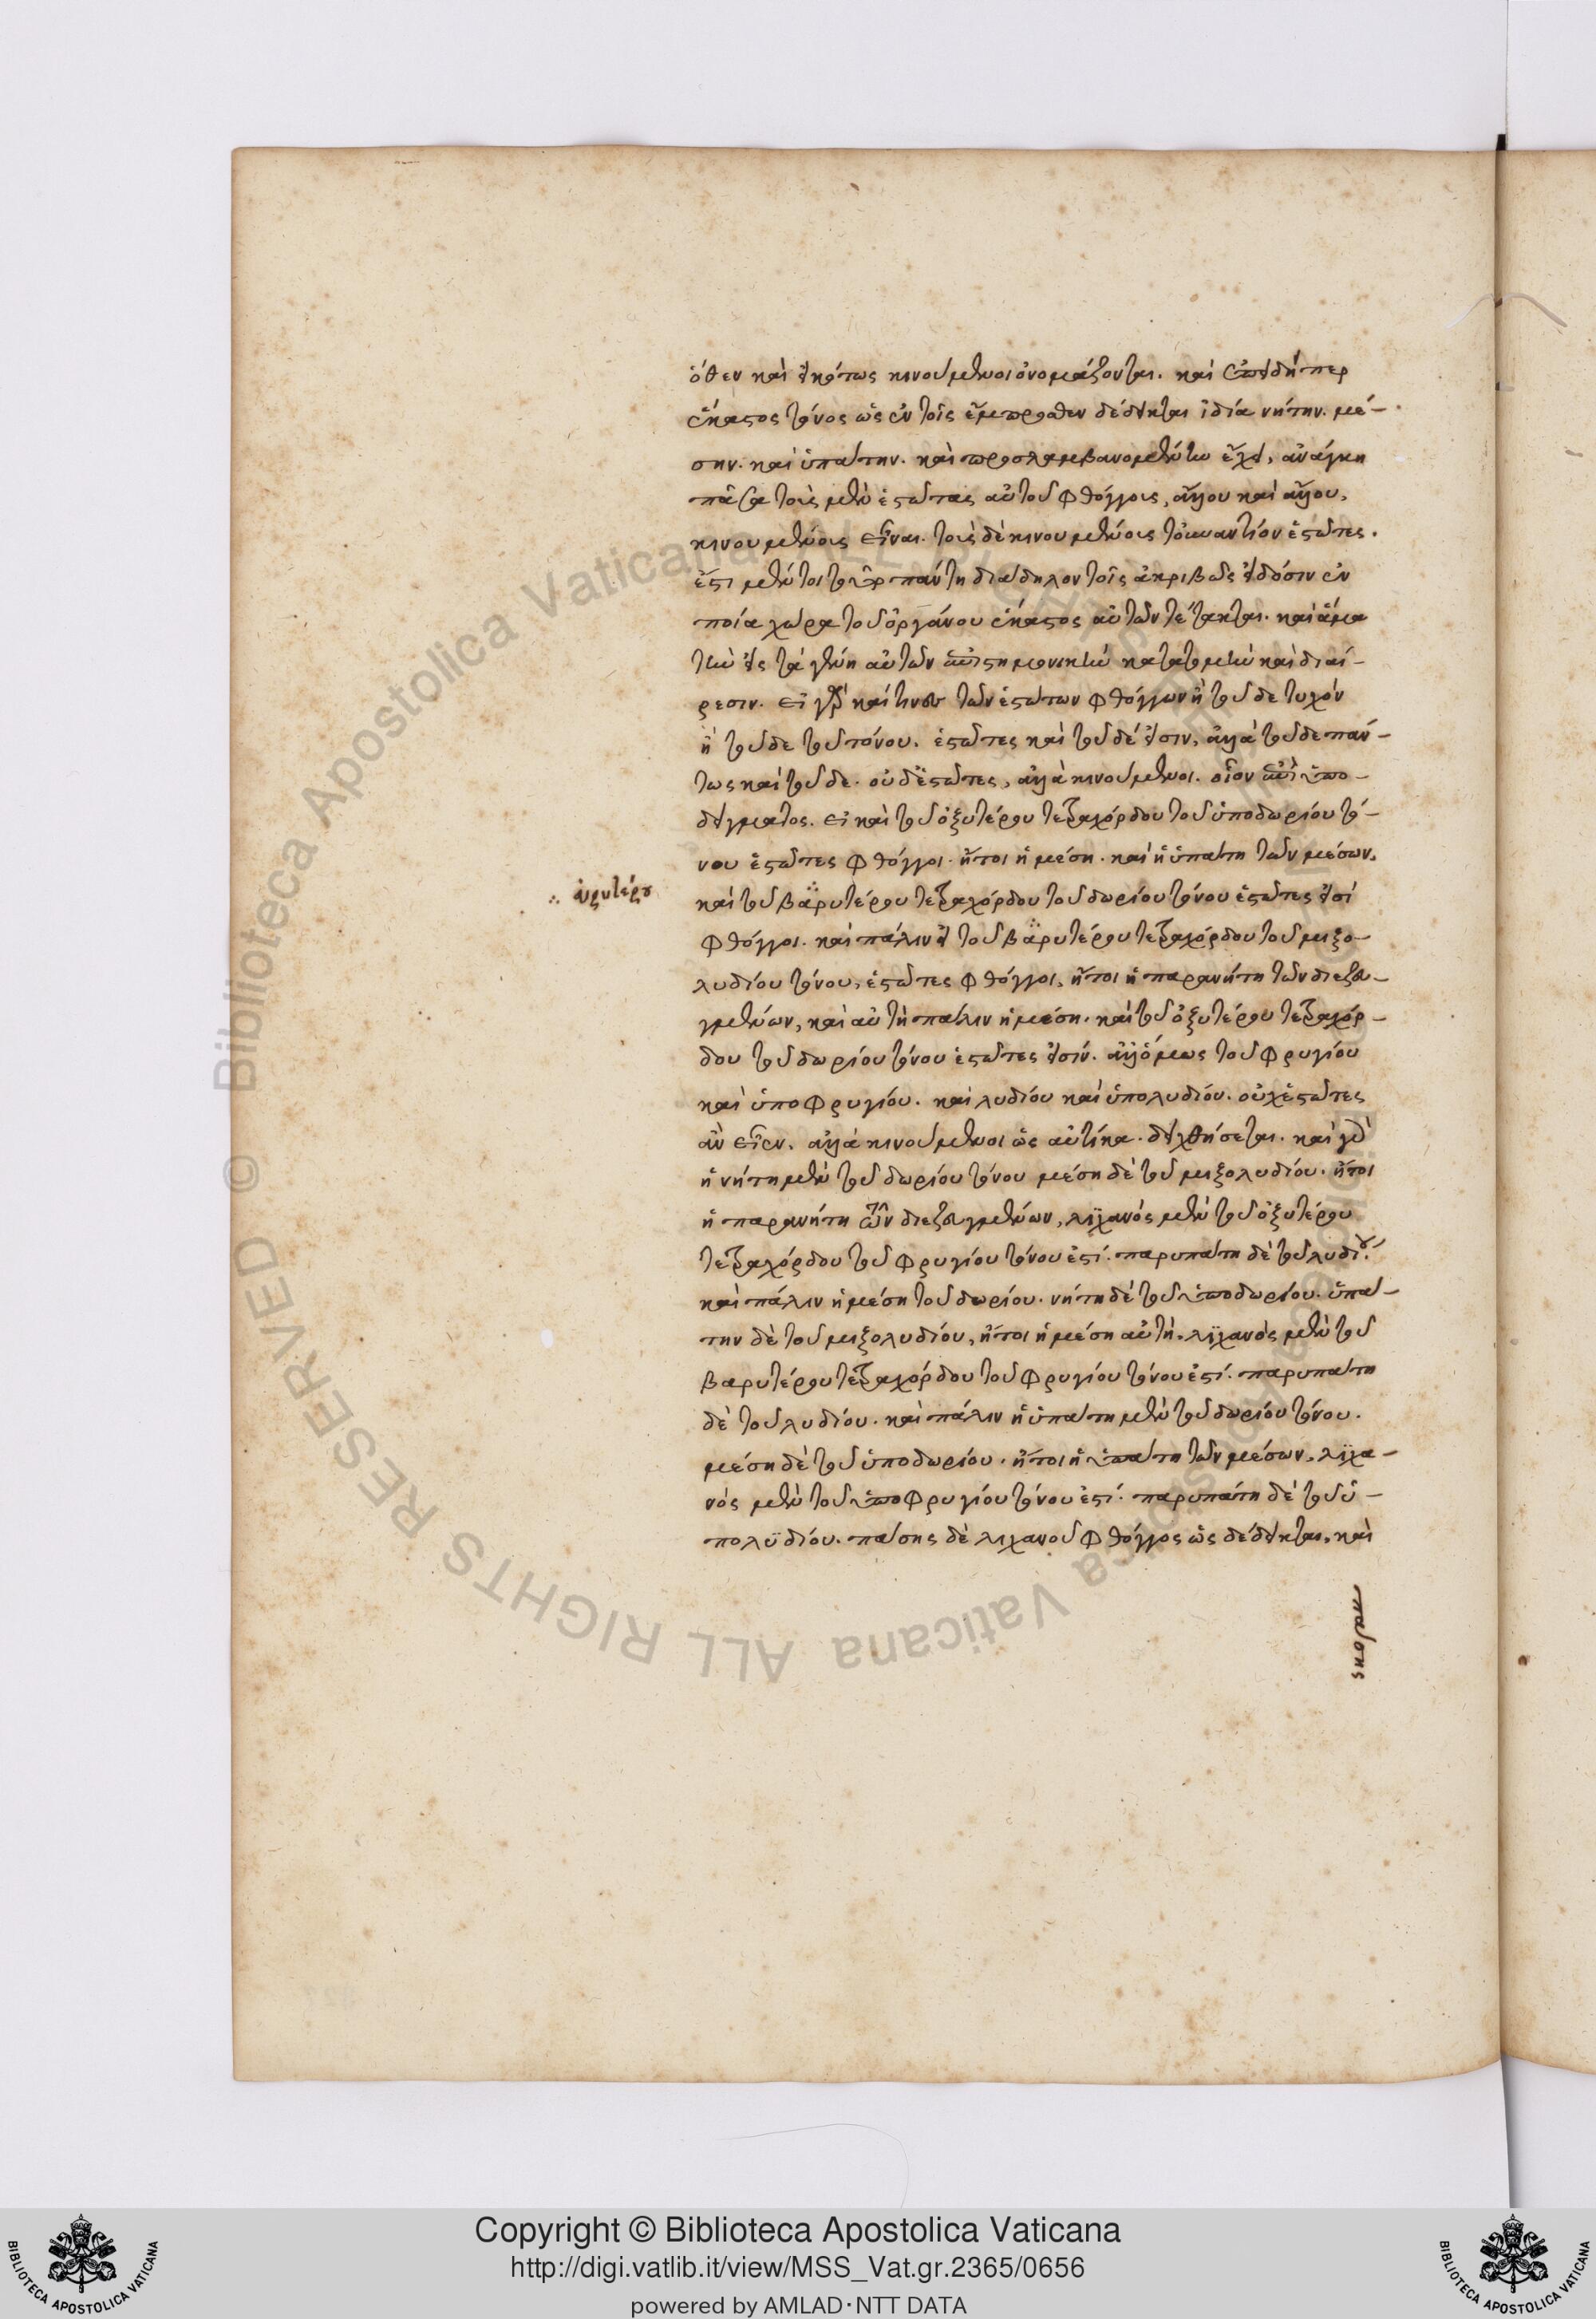 ὅθεν καὶ εἰκότως κινούμενοι ὀνομάζονται. καὶ ἐπειδήπερ
ἕκαστος τόνος ὡς ἐν τοῖς ἔμπροσθεν δέδεικται ἰδία νήτην. μέ-
σην. καὶ ὑπάτην. καὶ προσλαμβανομένην ἔχει, ἀνάγκη
πᾶσα τοὺς μὲν ἑστῶτας αὐτοῦ φθόγγους, ἄλλου καὶ ἄλλου,
κινουμένους εἶναι. τοὺς δὲ κινουμένους τοὐναντίον ἑστῶτες.
ἔστι μέντοι τοῦτο πάντη διάδηλον τοῖς ἀκριβῶς εἰδόσιν ἐν
ποία χώρα τοῦ ὀργάνου ἕκαστος αὐτῶν τέτακται. καὶ ἅμα
τὴν εἰς τὰ γένη αὐτῶν ἐπιστημονικὴν κατατομὴν καὶ διαί-
ρεσιν. εἰ γὰρ καί τινων τῶν ἑστώτων φθόγγων ἢ τοῦδε τυχόν
ἢ τοῦδε τοῦ τόνου. ἑστῶτες καὶ τοῦδέ εἰσιν, ἀλλὰ τοῦδε πάν-
τως καὶ τοῦδε. οὐδ' ἑστῶτες, ἀλλὰ κινούμενοι. οἷον ἐπὶ ὑπο-
δείγματος. εἰ καὶ τοῦ ὀξυτέρου τετραχόρδου τοῦ ὑποδωρίου τό-
νου ἑστῶτες φθόγγοι. ἤτοι ἡ μέση. καὶ ἡ ὑπάτη τῶν μέσων,
καὶ τοῦ βαρυτέρου τετραχόρδου τοῦ δωρίου τόνου ἑστῶτες εἰσὶ
φθόγγοι. καὶ πάλιν εἰ τοῦ βαρυτέρου τετραχόρδου τοῦ μιξο-
λυδίου τόνου, ἑστῶτες φθόγγοι, ἤτοι ἡ παρανήτη τῶν διεζευ-
γμένων, καὶ αὐτὴ πάλιν ἡ μέση. καὶ τοῦ ὀξυτέρου τετραχόρ-
δου τοῦ δωρίου τόνου ἑστῶτες εἰσίν. ἀλλ' ὅμως τοῦ φρυγίου
καὶ ὑποφρυγίου. καὶ λυδίου καὶ ὑπολυδίου. οὐχ ἑστῶτες
ἂν εἶεν. ἀλλὰ κινούμενοι ὡς αὐτίκα. δειχθήσεται. καὶ γὰρ
ἡ νήτη μὲν τοῦ δωρίου τόνου μέση δὲ τοῦ μιξολυδίου. ἤτοι
ἡ παρανήτη τῶν διεζευγμένων, λιχανὸς μὲν τοῦ ὀξυτέρου
τετραχόρδου τοῦ φρυγίου τόνου ἐστί. παρυπάτη δὲ τοῦ λυδίου.
καὶ πάλιν ἡ μέση τοῦ δωρίου. νήτη δὲ τοῦ ὑποδωρίου. ὑπά-
την δὲ τοῦ μιξολυδίου, ἤτοι ἡ μέση αὐτὴ, λιχανὸς μὲν τοῦ
βαρυτέρου τετραχόρδου τοῦ φρυγίου τόνου ἐστί. παρυπάτη
δὲ τοῦ λυδίου. καὶ πάλιν ἡ ὑπάτη μὲν τοῦ δωρίου τόνου.
μέση δὲ τοῦ ὑποδωρίου. ἤτοι ἡ ὑπάτη τῶν μέσων, λιχα-
νὸς μὲν τοῦ ὑποφρυγίου τόνου ἐστί. παρυπάτη δὲ τοῦ ὑ-
πολυδίου. πάσης δὲ λιχανοῦ φθόγγος ὡς δέδεικται, καὶ
πάσης
Copyright © Biblioteca Apostolica Vaticana
http://digi.vatlib.it/view/MSS_Vat.gr.2365/0656
powered by AMLAD·NTT DATA
BIBLIOTECA APOSTOLICA VATICANA
BIBLIOTECA APOSTOLICA VATICANA